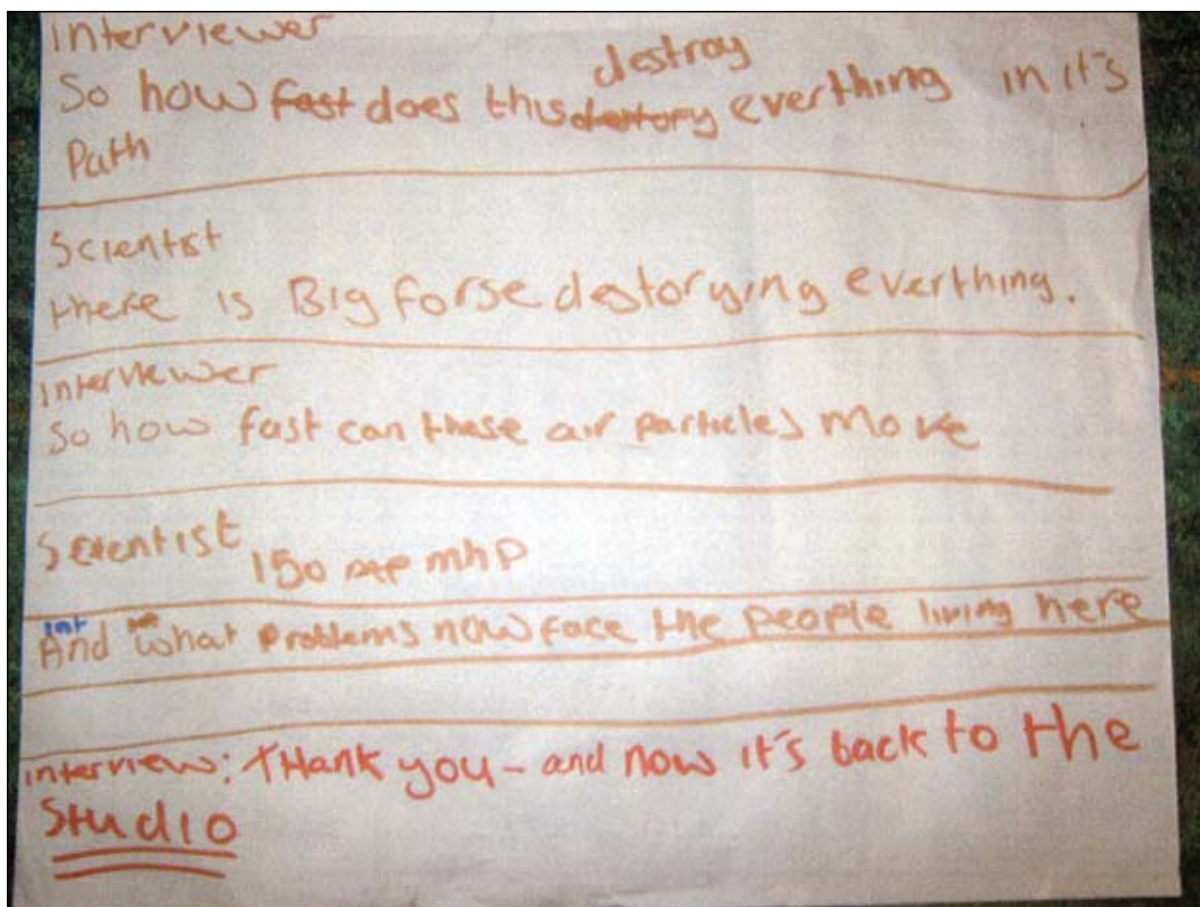 Interviewer
destroy
So how fast does this destory everthing in it's
Path
Scientist
there is Big forse destorying everthing.
interviewer
So how fast can these air particles move
Scientist
150 mhp
int
And what problems now face the people living here
interview: THank you - and now it's back to the
Studio